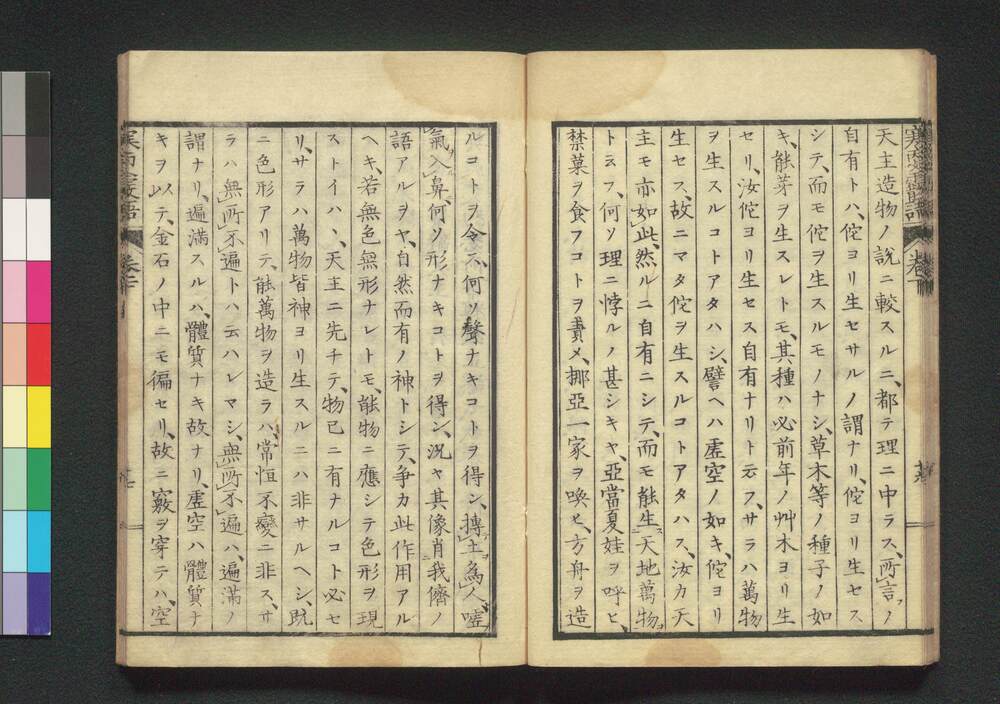 天主造物ノ説ニ較スルニ、都テ理ニ中ラス、所言ノ
自有トハ、佗ヨリ生セサルノ謂ナリ、佗ヨリ生セス
シテ、而モ佗ヲ生スルモノナシ、草木等ノ種子ノ如
キ、能芽ヲ生スレトモ、其種ハ必前年ノ艸木ヨリ生
セリ、汝佗ヨリ生セス自有ナリト云フ、サラハ萬物
ヲ生スルコトアタハシ、譬ヘハ虚空ノ如キ、佗ヨリ
生セス、故ニマタ佗ヲ生スルコトアタハス、汝カ天
主モ亦如此、然ルニ自有ニシテ、而モ能生天地萬物
ト云フ、何ソ理ニ悖ルノ甚シキヤ、亞當夏娃ヲ呼ヒ、
禁菓ヲ食フコトヲ責メ、挪亞一家ヲ喚ヒ、方舟ヲ造
ルコトヲ令ス、何ソ聲ナキコトヲ得ン、摶土為人嘘
氣入鼻、何ソ形ナキコトヲ得ン、況ヤ其像肖我儕ノ
語アルヲヤ、自然而有ノ神トシテ、争カ此作用アル
ヘキ、若無色無形ナレトモ、能物ニ應シテ色形ヲ現
ストイハヽ、天主ニ先チテ、物已ニ有ナルコト必セ
リ、サラハ萬物皆神ヨリ生スルニハ非サルヘシ、既
ニ色形アリテ、能萬物ヲ造ラハ、常恒不變ニ非ス、サ
ラハ無所不遍トハ云ハレマシ、無所不遍ハ、遍滿ノ
謂ナリ、遍滿スルハ、體質ナキ故ナリ、虚空ハ體質ナ
キヲ以テ、金石ノ中ニモ徧セリ、故ニ竅ヲ穿テハ、空